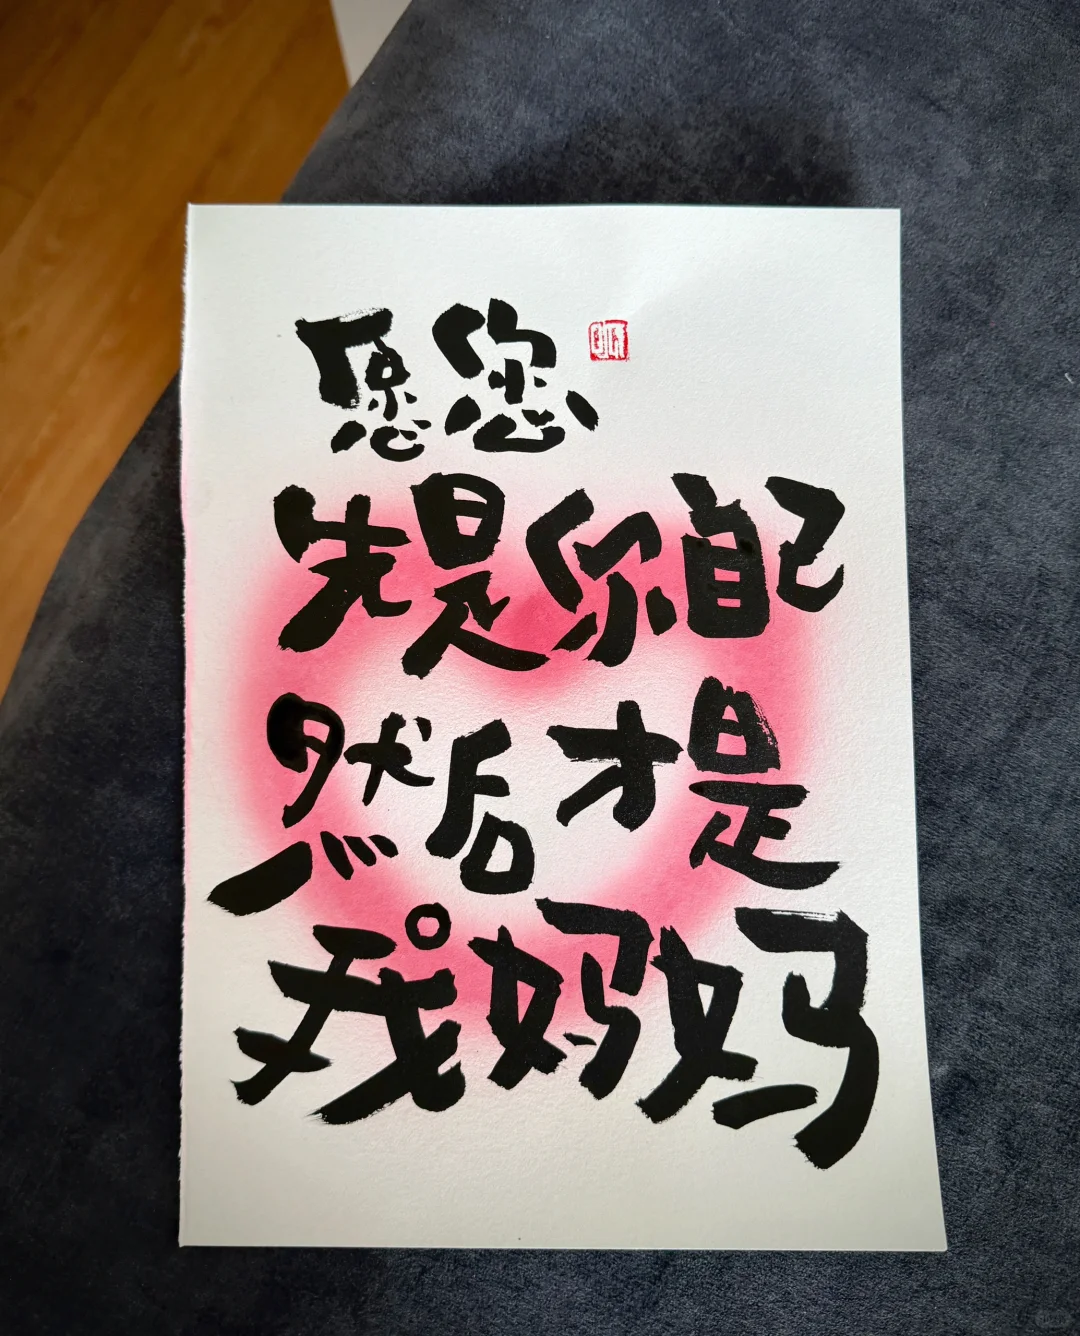 愿您
先是你自己
然后才是
我妈妈